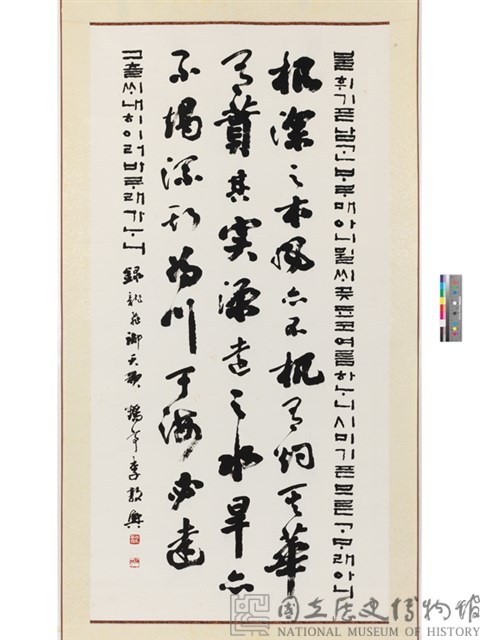 불휘기픈남ᄀᆞᆫᄇᆞᄅᆞ매아니뮐씨곶됴코여름하ᄂᆞ니시미기픈므른ᄀᆞᄆᆞ래아니
根深之木風亦不扤有灼其華
有蕡其實源遠之水旱亦
不竭流斯為川于海必達
그츨씨내히이러바ᄅᆞ래가ᄂᆞ니 錄龍飛御天歌 鶴亭李敦興
國立歷史博物館
NATIONAL MUSEUM OF HISTORY